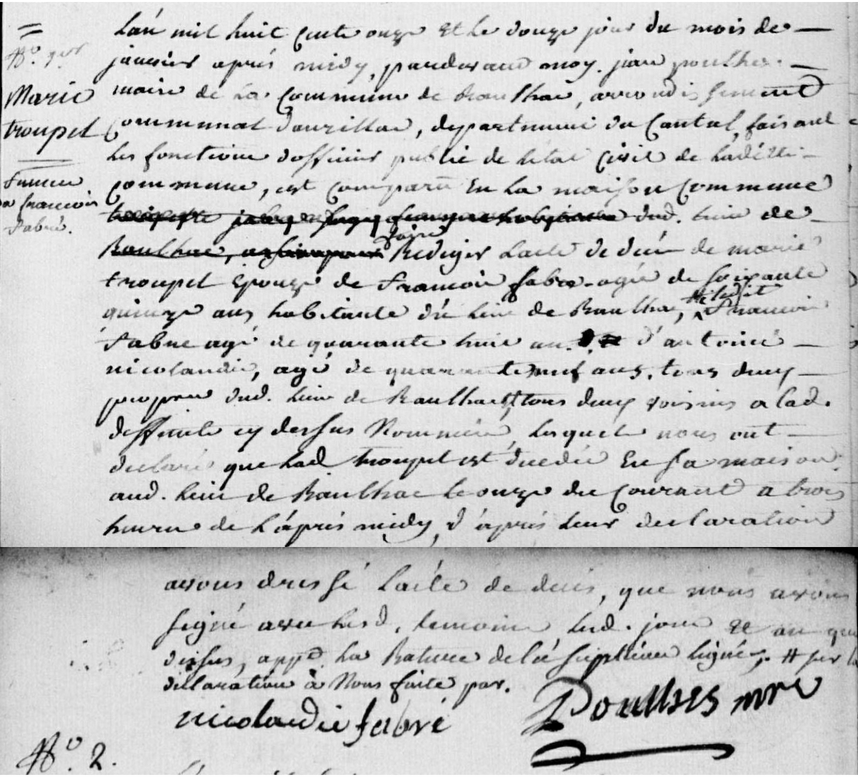 N.o 1.er
Marie
troupel
femme
a francois
fabre.
L'an mil huit cents onze et le douze jour du mois de
janvier après midy, pardevant moy. jean poulhes
maire de la Commune de Raulhac, arrondissement
Communal d'aurillac, departement du Cantal, faisant
les fonctions d'officier public de letat Civil de ladette
Commune, est Comparu En la maison Commune
dud. lieu de
Raulhac, faire Rediger Lacte de décés de marie
troupel Epouse de francois fabre. agée de soixante
quinze ans habitante du lieu de Raulhac, ledit francois
fabre agé de quarante huit ans d'antoine
nicolaudie, agé de quarante neuf ans, tous deux
propres dud. lieu de Raulhac, tous deux voisins a lad.
deffunte cy dessus Nommée, lesquels nous ont
declaré que lad. troupel est décedée En sa maison
aud. lieu de Raulhac le onze du Courant a trois
heures de l'après midy, d'après leur declaration
avons dressé Lacte de decés, que nous avons
signé avec lesd. temoins lesd. jour et an que
dessus, appé. la Rature de la septieme ligne, # sur la
declaration à Nous faite par.
nicolaudie fabré Poulhes mre
N.o 2.